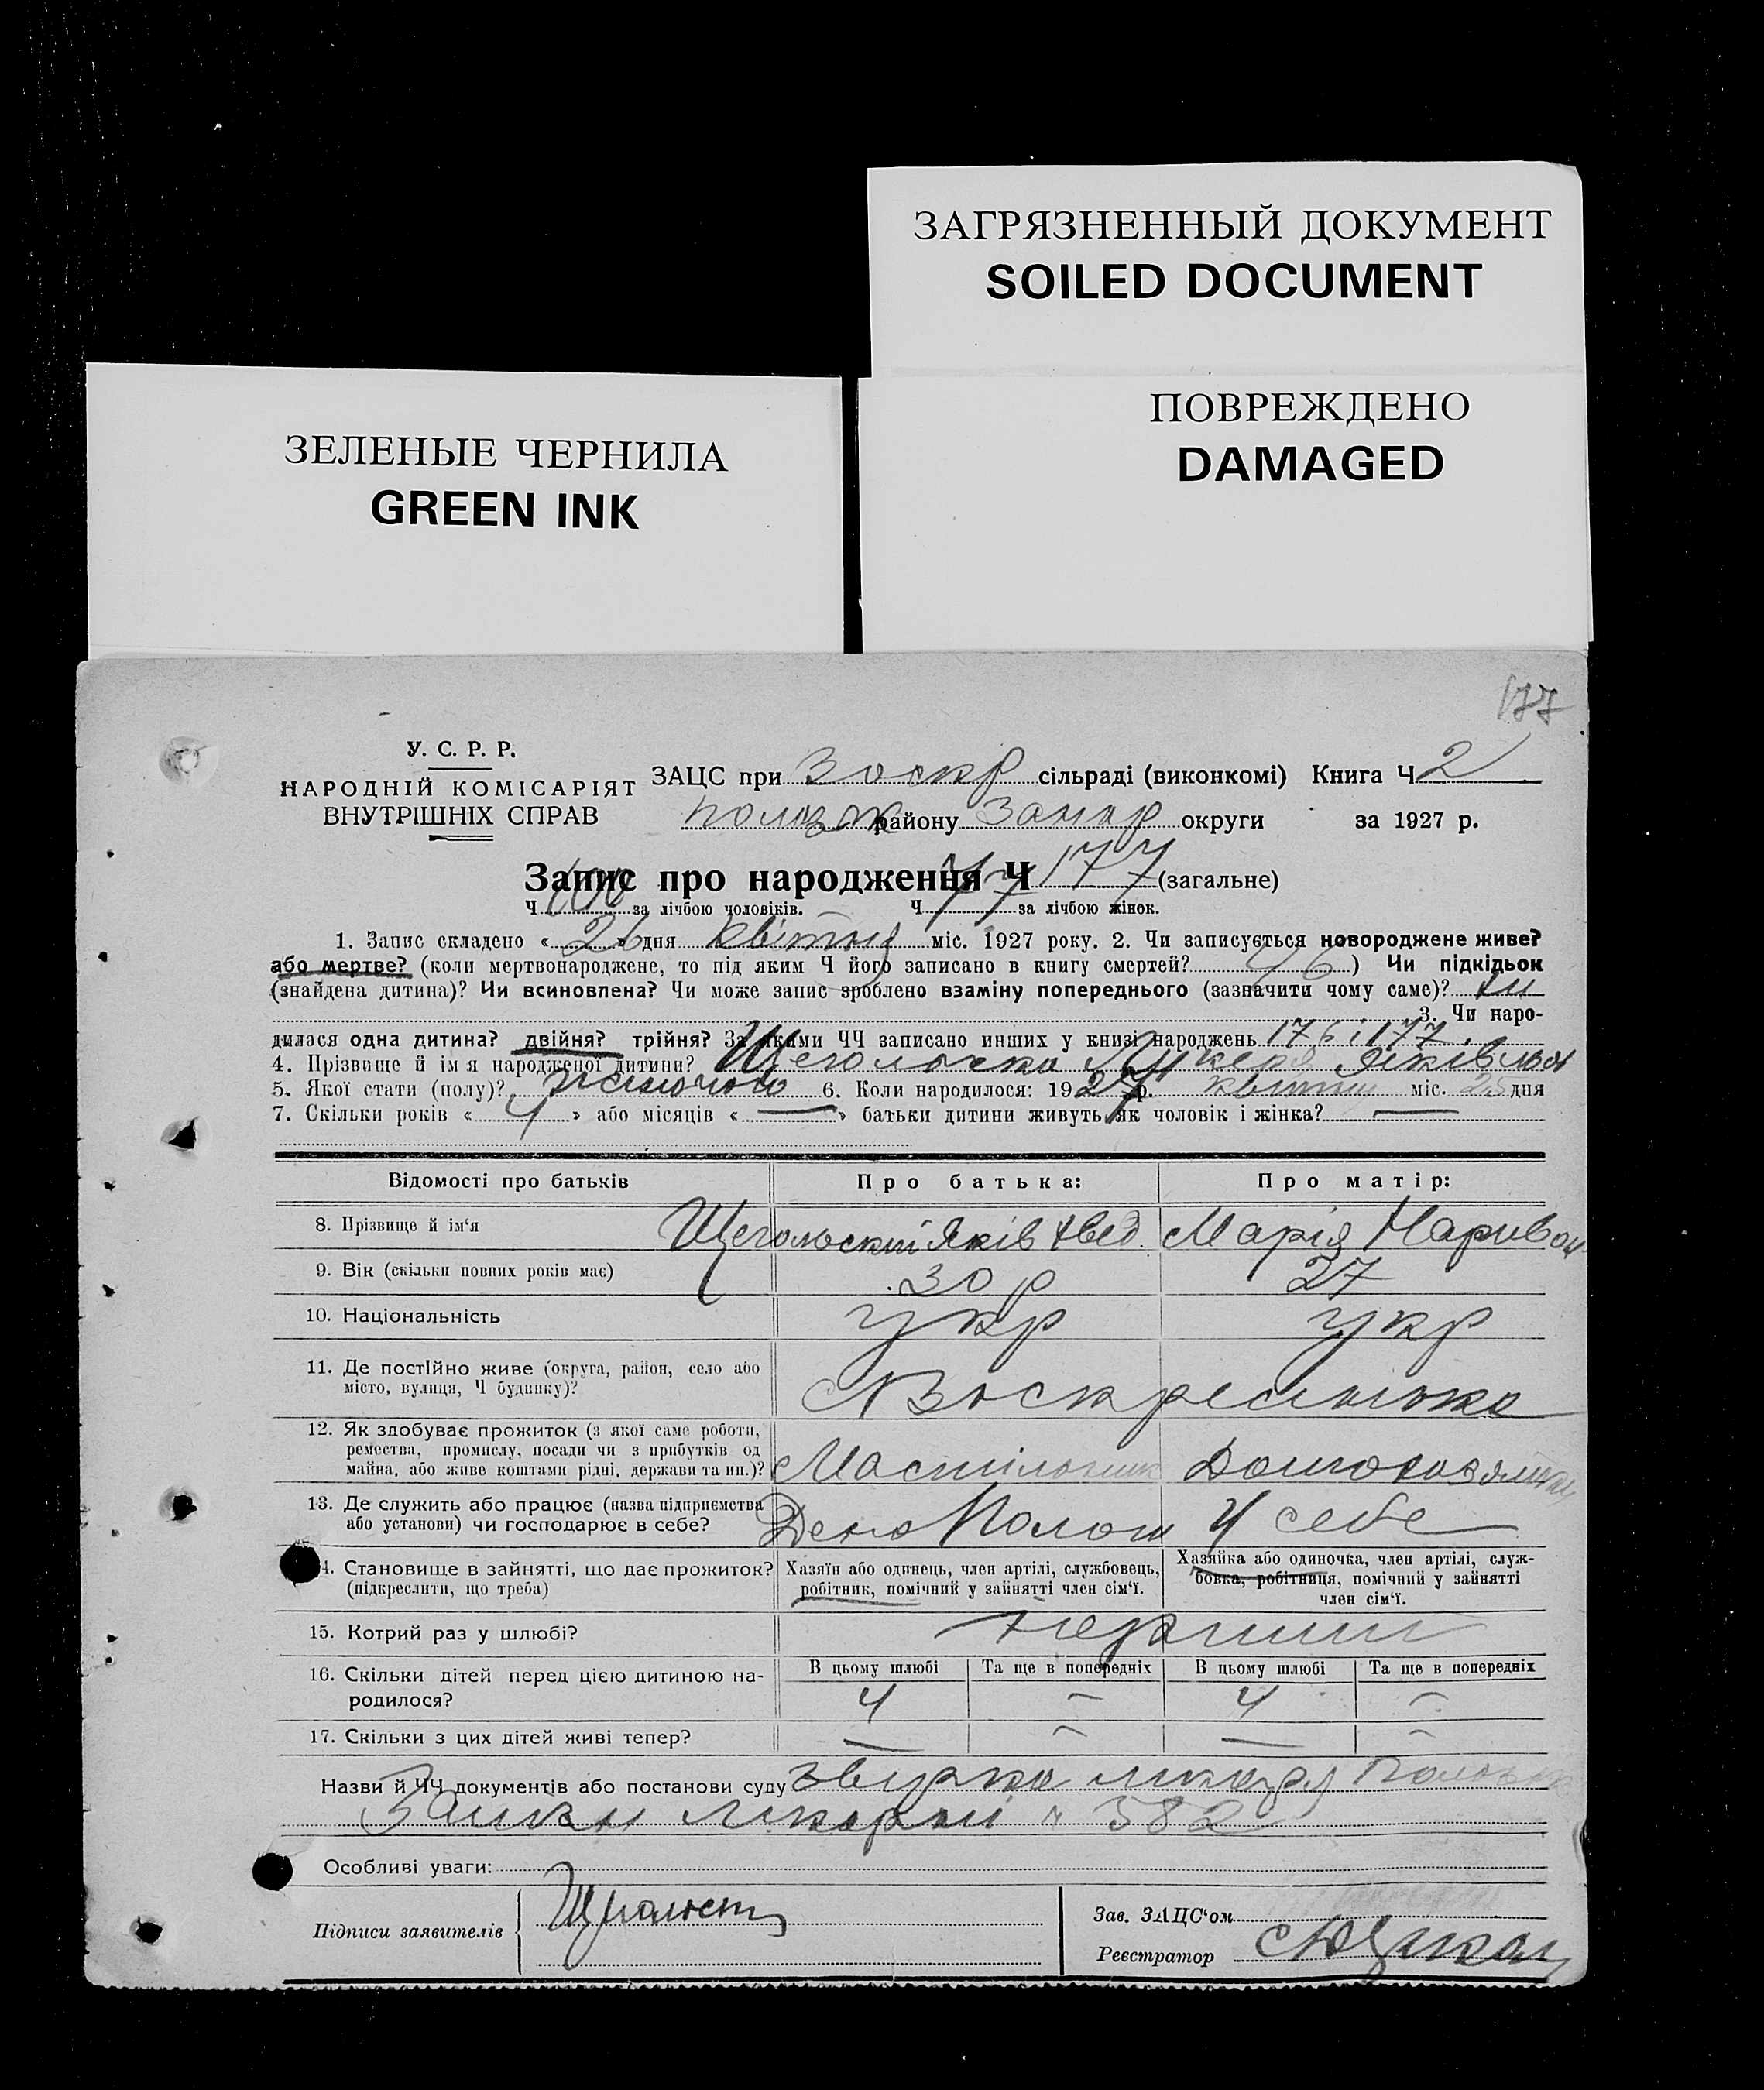 ЗАГРЯЗНЕННЫЙ ДОКУМЕНТ
SOILED DOCUMENT
ПОВРЕЖДЕНО
DAMAGED
ЗЕЛЕНЫЕ ЧЕРНИЛА
GREEN INK
177
У. С. Р. Р.
НАРОДНІЙ КОМІСАРІЯТ
ВНУТРІШНІХ СПРАВ
ЗАЦС при Воскр сільраді (виконкомі) Книга Ч 2
району Запор округи за 1927 р.
Запис про народження Ч 177 (загальне)
Ч 100 за лічбою чоловіків. Ч 77 за лічбою жінок.
1. Запис складено « 26 » дня квітня міс. 1927 року. 2. Чи записується новороджене живе?
або мертве? (коли мертвонароджене, то під яким Ч його записано в книгу смертей? 46) Чи підкідьок
(знайдена дитина)? Чи всиновлена? Чи може запис зроблено взаміну попереднього (зазначити чому саме)?
3. Чи наро-
дилася одна дитина? двійня? трійня? За якими ЧЧ записано инших у книзі народжень 176 і 177.
4. Прізвище й ім'я народженої дитини? Яківльов
5. Якої стати (полу)? жіночого 6. Коли народилося: 1927 р. квітня міс. 25 дня
7. Скільки років « 4 » або місяців « — » батьки дитини живуть як чоловік і жінка? —
Відомості про батьків Про батька: Про матір:
8. Прізвище й ім'я Щегольский Яків Марія
9. Вік (скільки повних років має) 30 р 27
10. Національність укр укр
11. Де постійно живе (округа, район, село або
місто, вулиця, Ч будинку)?
12. Як здобуває прожиток (з якої саме роботи,
ремества, промислу, посади чи з прибутків од
майна, або живе коштами рідні, держави та ин.)?
13. Де служить або працює (назва підприємства
або установи) чи господарює в себе? Депо Пологи У себе
14. Становище в зайнятті, що дає прожиток?
(підкреслити, що треба)
Хазяїн або одинець, член артілі, службовець,
робітник, помічний у зайнятті член сім'ї.
Хазяйка або одиночка, член артілі, служ-
бовка, робітниця, помічний у зайнятті
член сім'ї.
15. Котрий раз у шлюбі? перший
16. Скільки дітей перед цією дитиною на-
родилося?
В цьому шлюбі Та ще в попередніх В цьому шлюбі Та ще в попередніх
4 — 4 —
17. Скільки з цих дітей живі тепер? — — — —
Назви й ЧЧ документів або постанови суду
лікарні 582
Особливі уваги:
Підписи заявителів
Зав. ЗАЦС'ом
Реєстратор